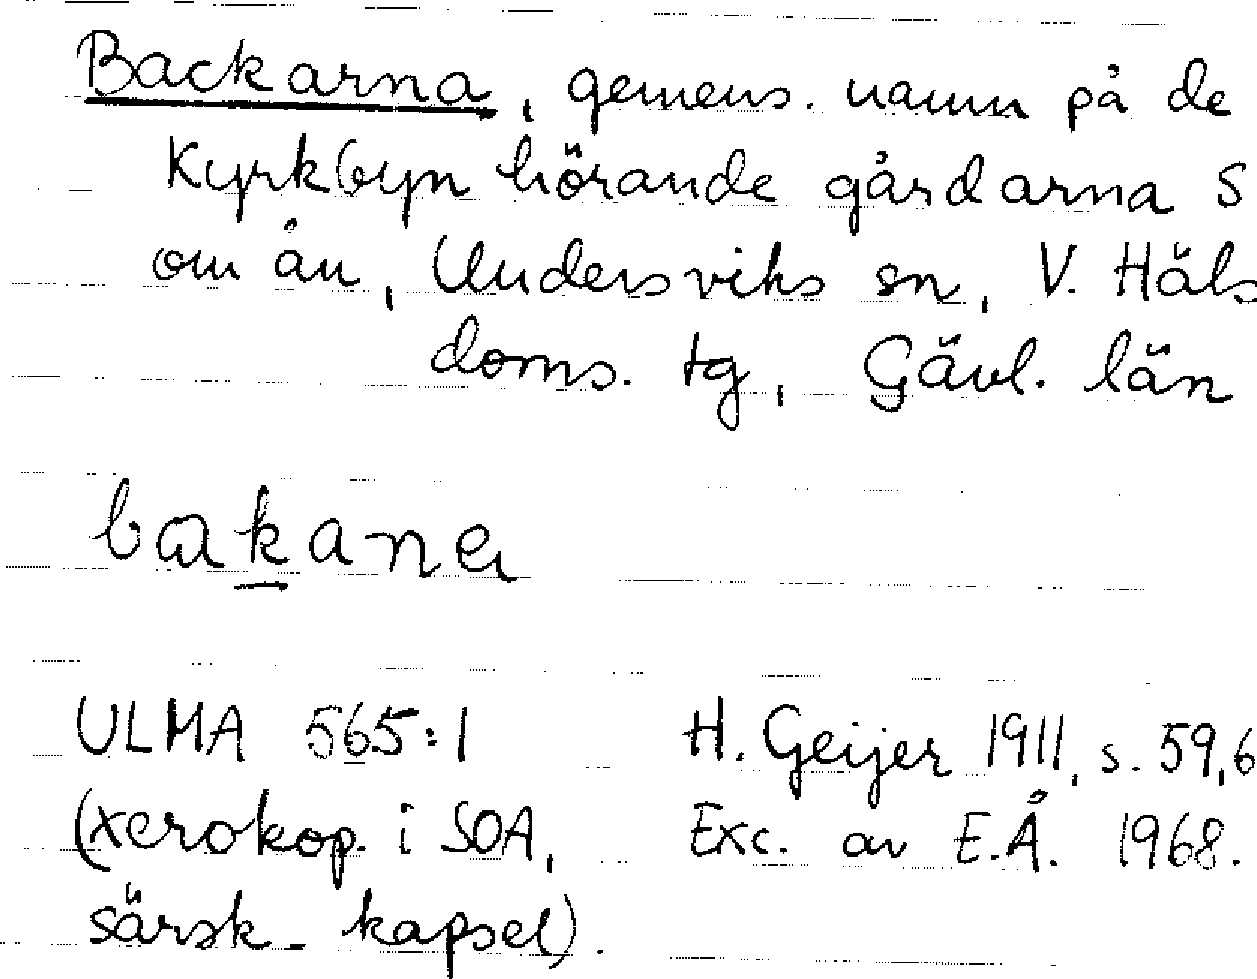 Backarna, gemens. namn på de
Kyrkbyn hörande gårdarna S
om ån, Undersviks sn, V. Häls
doms. tg, Gävl. län
bakana
ULMA 565:1 H. Geijer 1911, s. 59,6
(xerokop. i SOA, Exc. av E.Å. 1968.
särsk. kapsel).